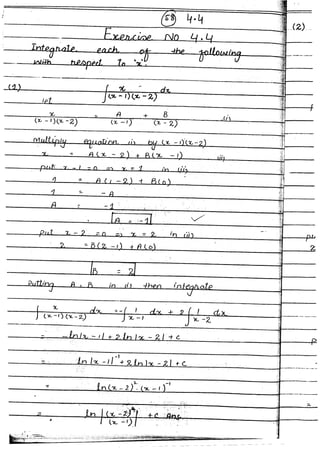 58 4.4
Exercise No 4.4
Integrate each of the following
with respect to 'x'.
(1) ∫ x/((x-1)(x-2)) dx
let
x/((x-1)(x-2)) = A/(x-1) + B/(x-2) (i)
multiply equation (i) by (x-1)(x-2)
x = A(x-2) + B(x-1) (ii)
put x-1=0 ⇒ x=1 in (ii)
1 = A(1-2) + B(0)
1 = -A
A = -1
A = -1
put x-2=0 ⇒ x=2 in (ii)
2 = B(2-1) + A(0)
B = 2
Putting A, B in (i) then integrate
∫ x/((x-1)(x-2)) dx = -∫ 1/(x-1) dx + 2∫ 1/(x-2) dx
= -ln|x-1| + 2ln|x-2| + c
= ln|x-1|⁻¹ + 2ln|x-2| + c
= ln(x-2)²·(x-1)⁻¹
= ln |(x-2)²/(x-1)| + c Ans
(2)
2